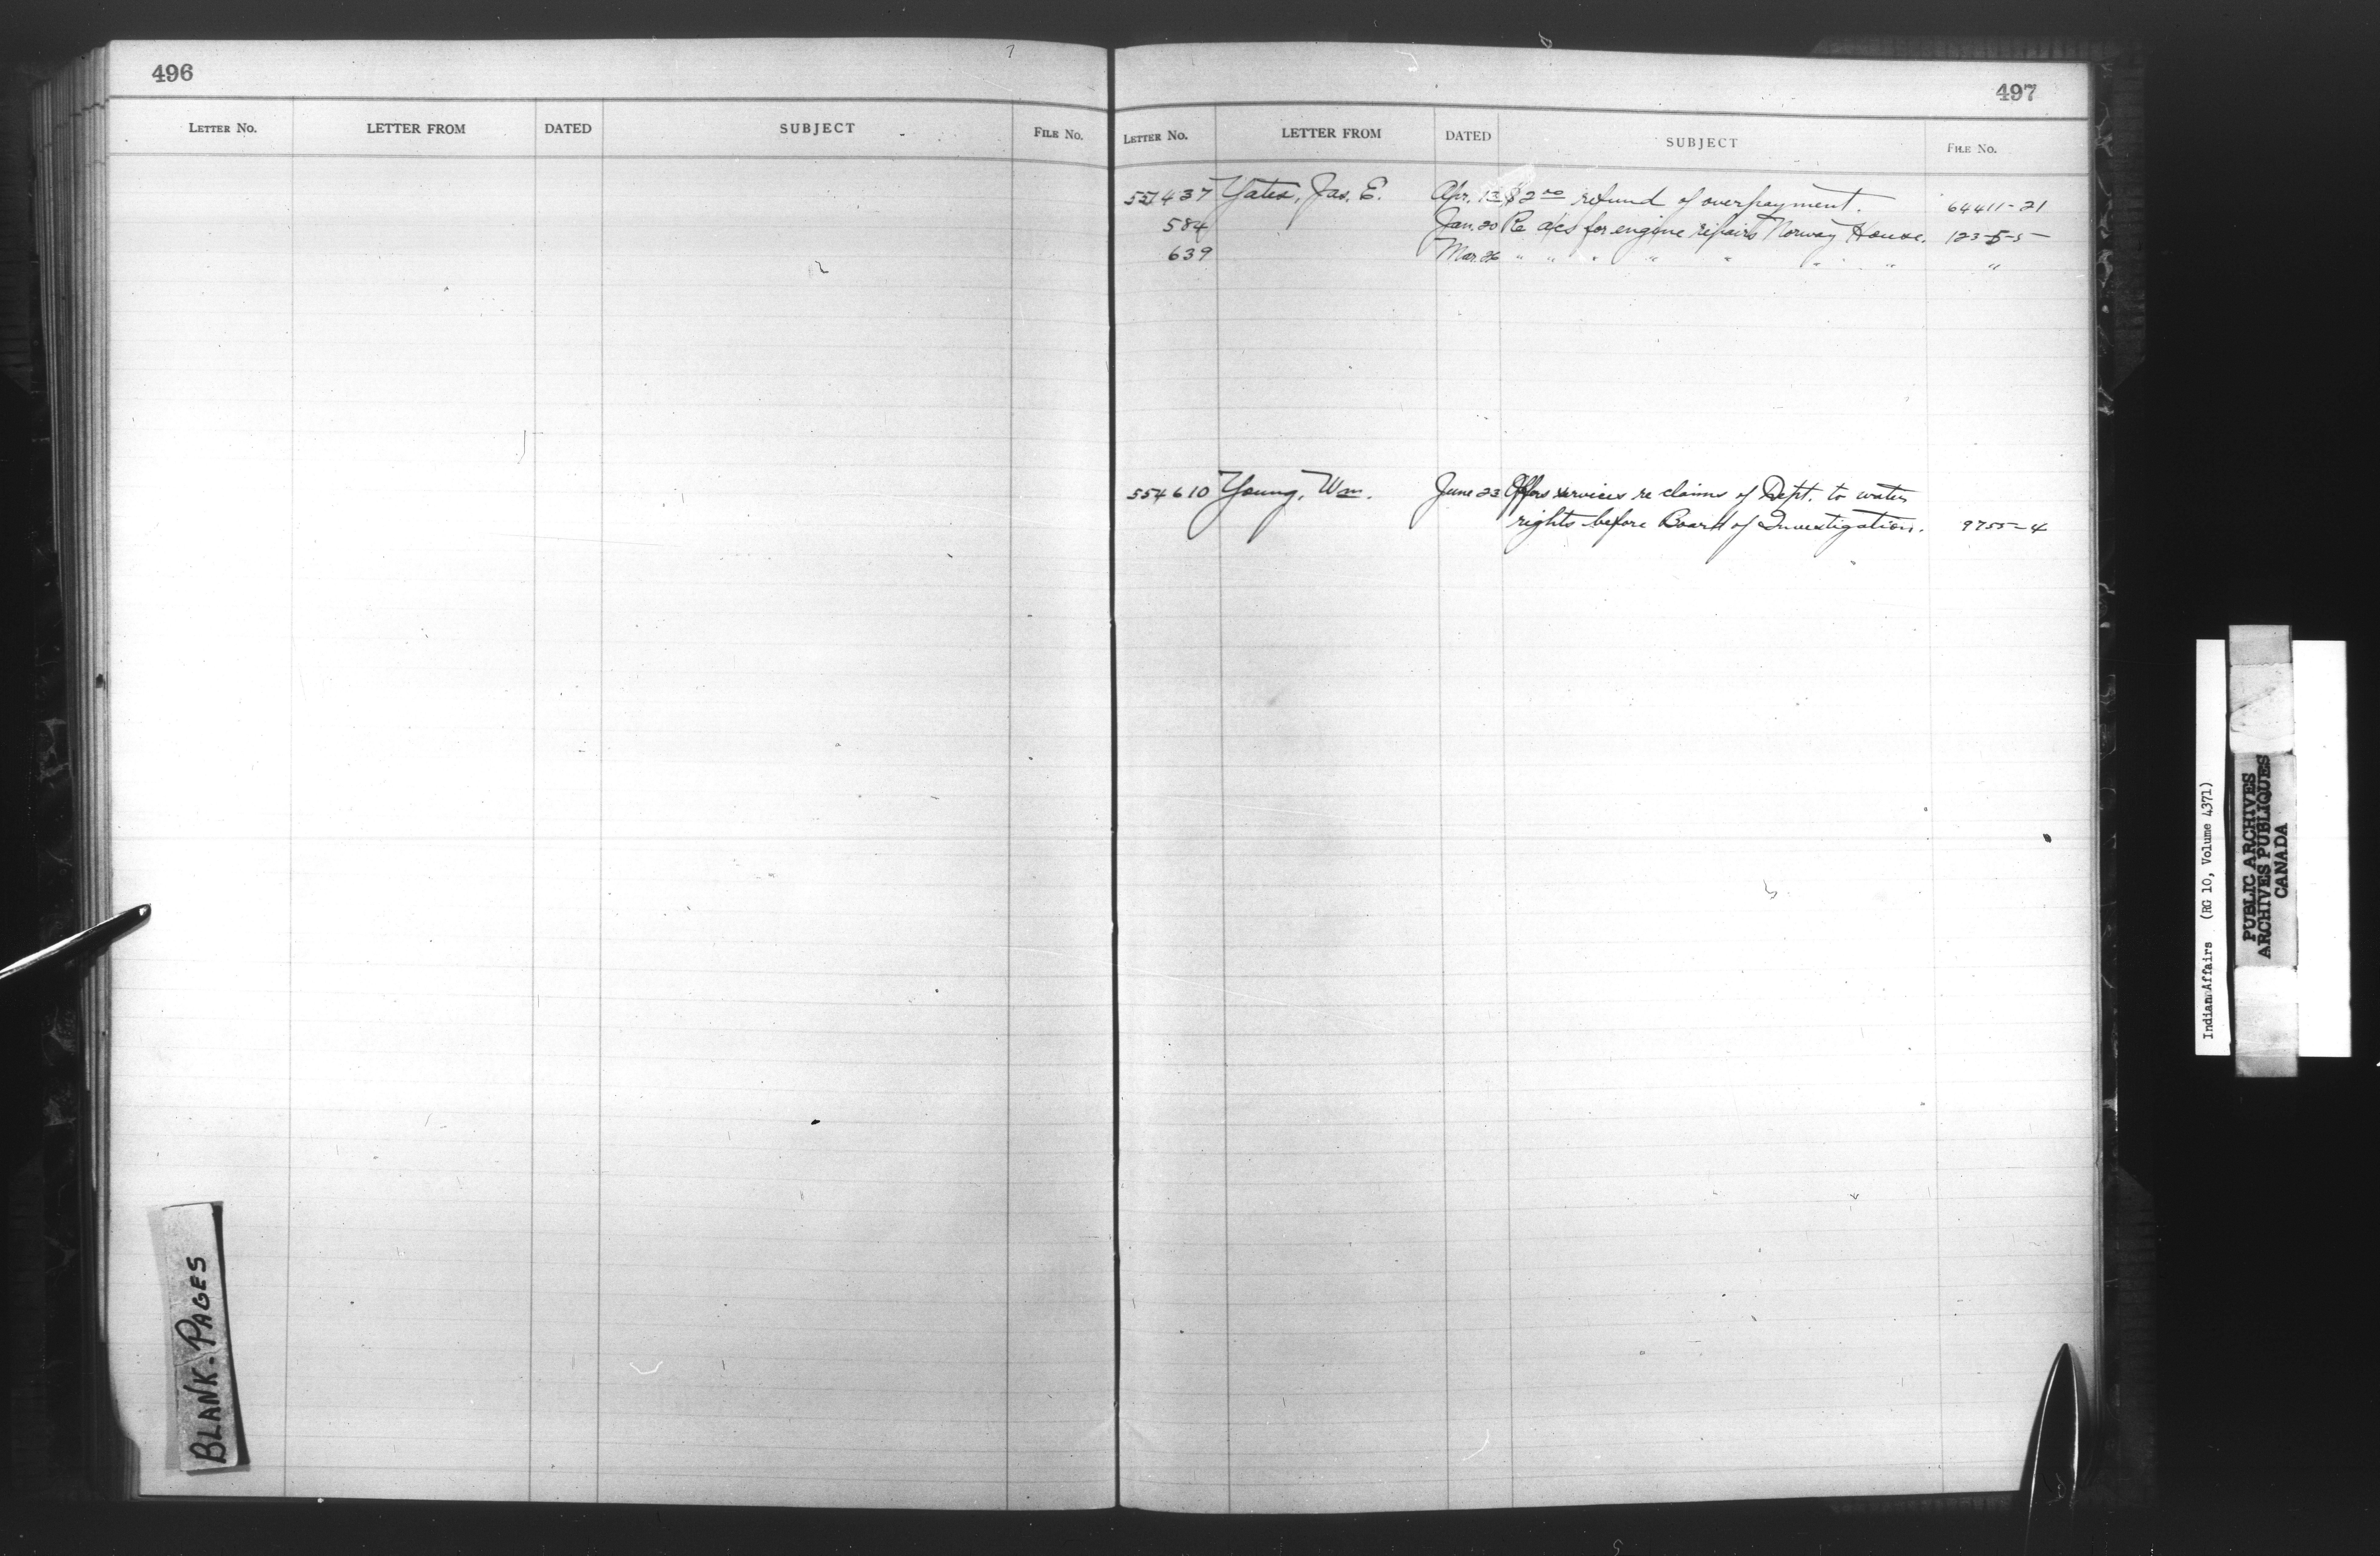 496
LETTER NO. LETTER FROM DATED SUBJECT FILE NO.
BLANK-PAGES
497
LETTER NO. LETTER FROM DATED SUBJECT FILE NO.
551437 Yates, Jas. E. Apr. 13 $2 00 refund of overpayment. 64411-21
584 Jan. 20 Re a/cs for engine repairs Norway House. 123-5-5
639 Mar. 26 " " " " " " " "
554610 Young, Wm. June 23 Offers services re claims of Dept. to water
rights before Board of Investigation. 9755-4
Indian Affairs (RG 10, Volume 4371)
PUBLIC ARCHIVES
ARCHIVES PUBLIQUES
CANADA